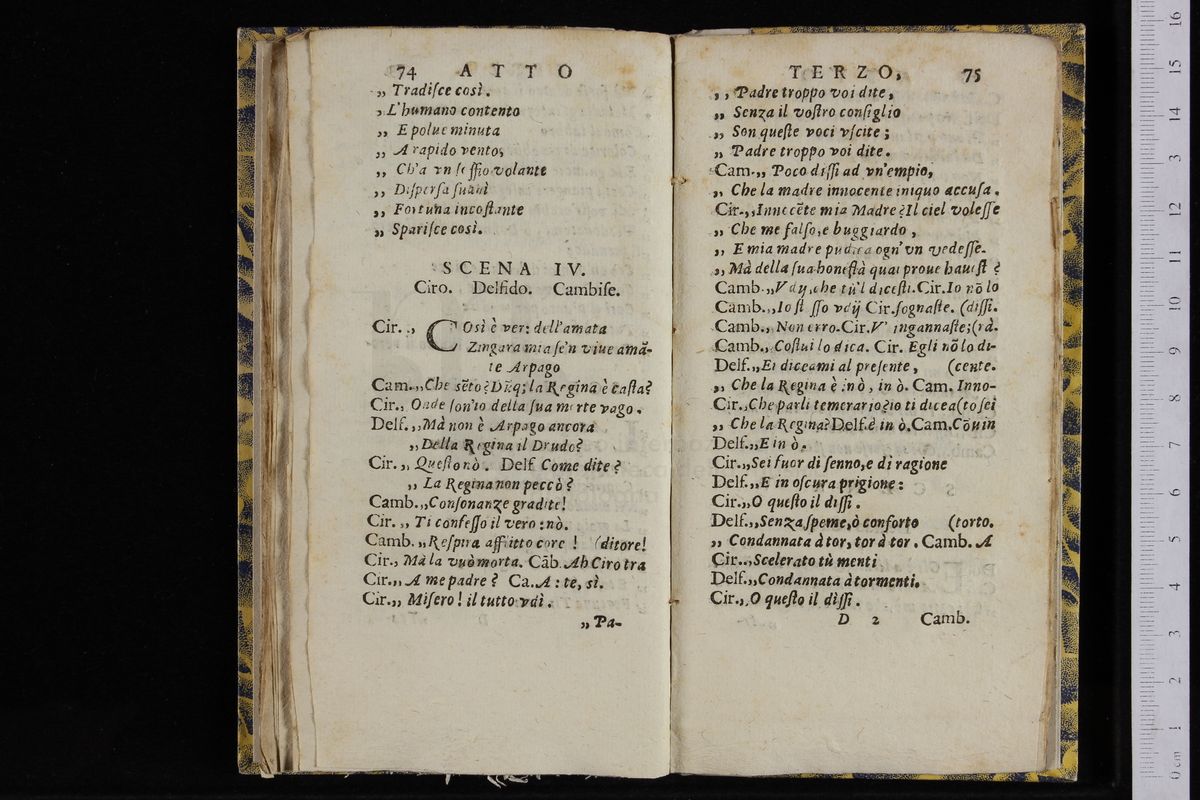 74 ATTO
„ Tradiſce così.
, L'humano contento
„ E polue minuta
„ A rapido vento,
„ Ch'a vn ſoffio volante
„ Diſperſa ſuanì
„ Fortuna incoſtante
„ Spariſce così.
SCENA IV.
Ciro. Delfido. Cambiſe.
Cir. „ COsì è ver: dell'amata
Zingara mia ſe'n viue amā-
te Arpago
Cam.„ Che sēto? Dūq; la Regina è caſta?
Cir., Onde ſon'io della ſua morte vago.
Delf. „ Mà non è Arpago ancora
„ Della Regina il Drudo?
Cir. „ Queſto nò. Delf. Come dite?
„ La Regina non peccò?
Camb.„ Conſonanze gradite!
Cir. „ Ti confeſſo il vero: nò.
Camb. „ Reſpira afflitto core! (ditore!
Cir., Mà la vuò morta. Cāb. Ah Ciro tra
Cir.„ A me padre? Ca. A: te, sì.
Cir.„ Miſero! il tutto vdì.
„ Pa-
TERZO, 75
, , Padre troppo voi dite,
„ Senza il voſtro conſiglio
„ Son queſte voci vſcite;
„ Padre troppo voi dite.
Cam.„ Poco diſſi ad vn'empio,
„ Che la madre innocente iniquo accuſa.
Cir.„ Innocēte mia Madre? Il ciel voleſſe
„ Che me falſo, e buggiardo,
„ E mia madre pudica ogn'vn vedeſſe.
„ Mà della ſua honeſtà quai proue haueſti?
Camb.„ Vdij, che tù'l diceſti. Cir. Io nō lo
Camb.„ Io ſteſſo vdij Cir. ſognaſte. (diſſi.
Camb., Non erro. Cir. V' ingannaſte; (rà.
Camb., Coſtui lo dica. Cir. Egli nō lo di-
Delf.„ Ei diceami al preſente, (cente.
„ Che la Regina è: nò, in ò. Cam. Inno-
Cir., Che parli temerario? io ti dicea (to ſei
„ Che la Regina? Delf. è in ò. Cam. Cōuin
Delf.„ E in ò.
Cir.„ Sei fuor di ſenno, e di ragione
Delf.„ E in oſcura prigione:
Cir.„ O queſto il diſſi.
Delf.„ Senza ſpeme, ò conforto (torto.
„ Condannata à tor, tor à tor. Camb. A
Cir.., Scelerato tù menti
Delf.„ Condannata à tormenti.
Cir., O queſto il diſſi.
D 2 Camb.